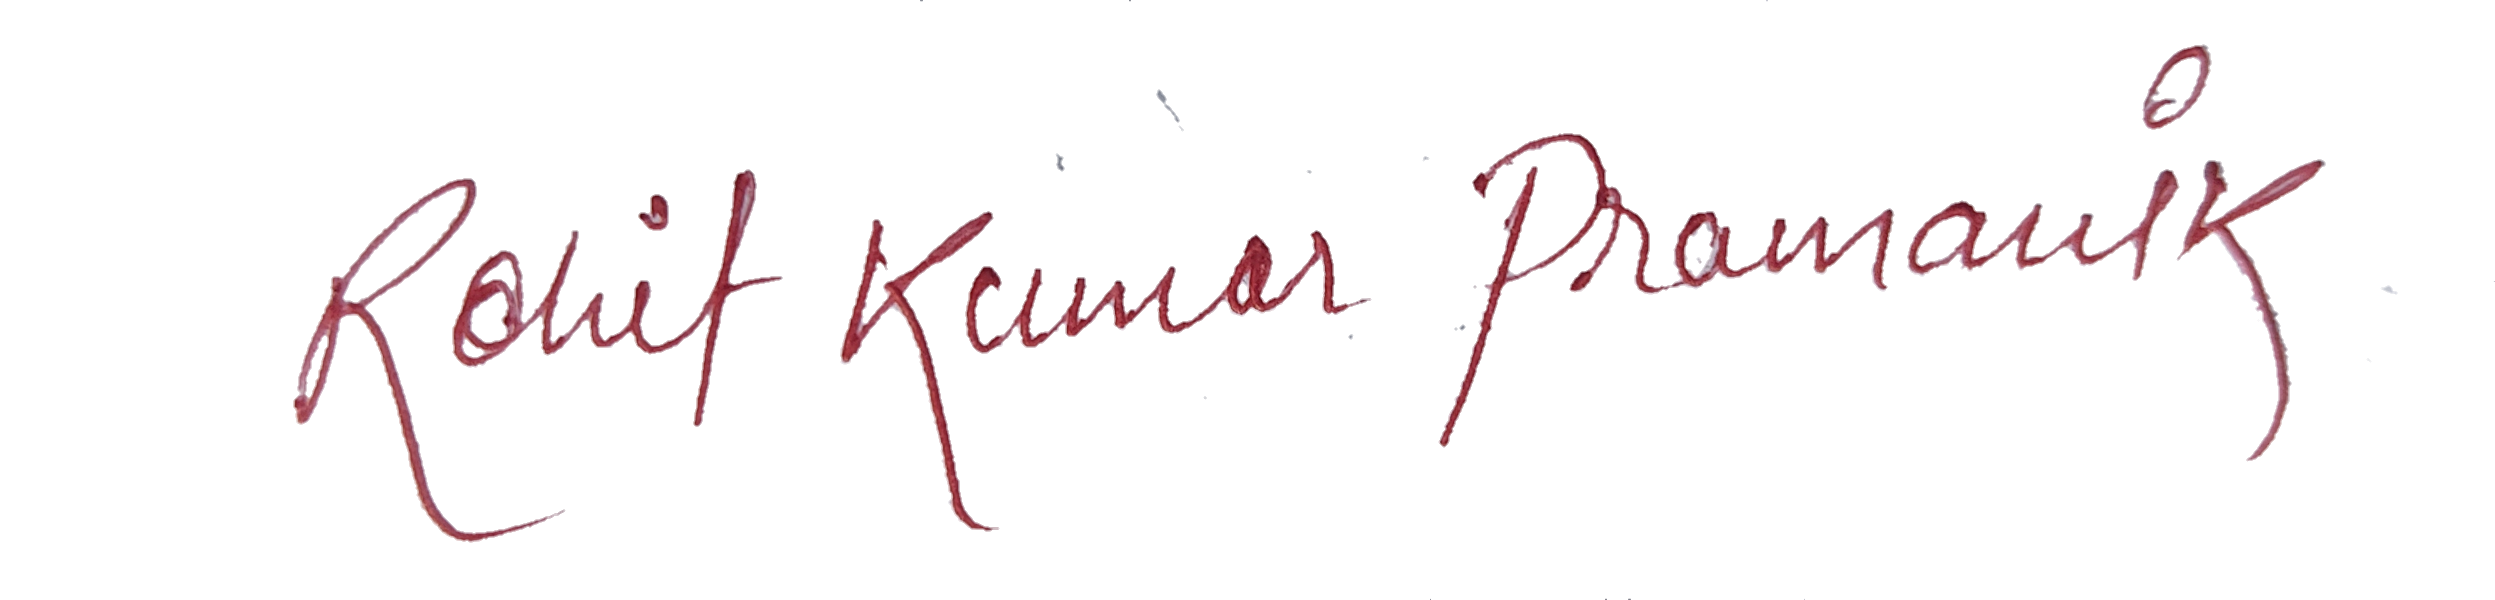 Rohit Kumar Pramanik